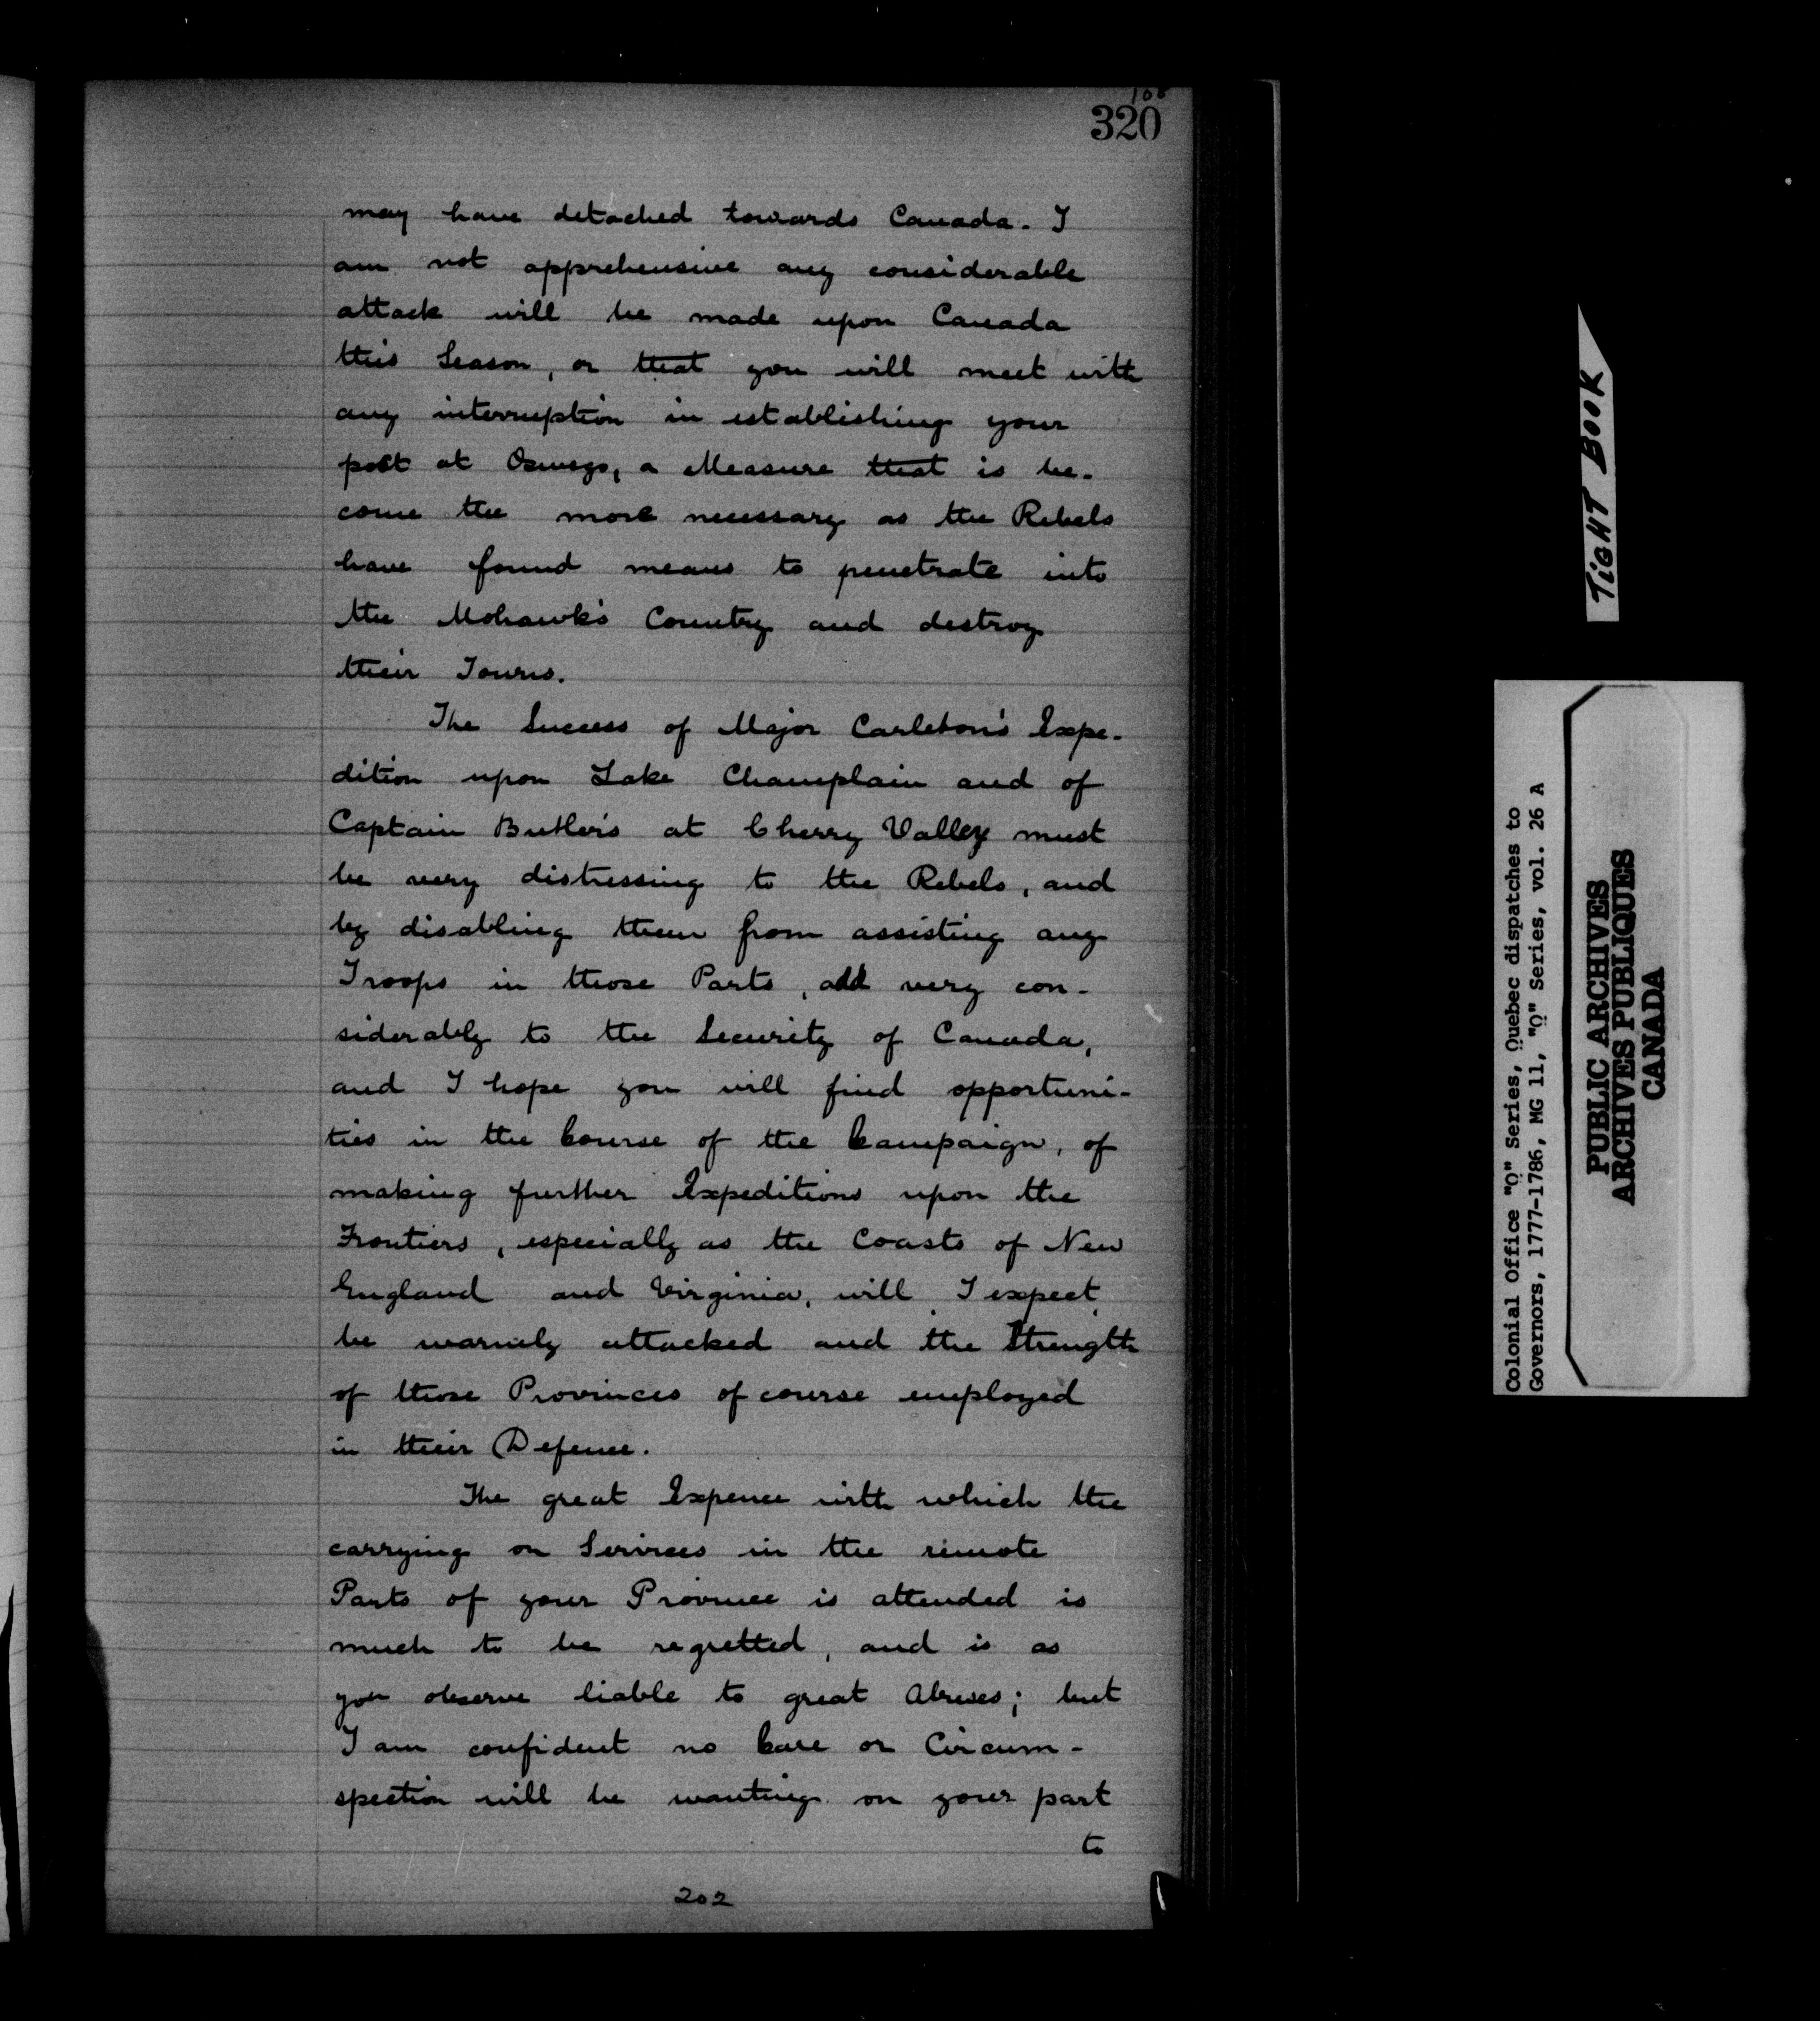 108
320
may have detached towards Canada. I
am not apprehensive any considerable
attack will be made upon Canada
this Season, or that you will meet with
any interruption in establishing your
post at Oswego, a Measure that is be-
come the more necessary as the Rebels
have found means to penetrate into
the Mohawk's Country and destroy
their Towns.
The Success of Major Carleton's Expe-
dition upon Lake Champlain and of
Captain Butler's at Cherry Valley must
be very distressing to the Rebels, and
by disabling them from assisting any
Troops in those Parts, add very con-
siderably to the Security of Canada,
and I hope you will find opportuni-
ties in the Course of the Campaign, of
making further Expeditions upon the
Frontiers, especially as the Coasts of New
England and Virginia, will I expect
be warmly attacked and the Strength
of those Provinces of course employed
in their Defence.
The great Expence with which the
carrying on Services in the remote
Parts of your Province is attended is
much to be regretted, and is as
you observe liable to great Abuses; but
I am confident no Care or Circum-
spection will be wanting on your part
to
202
TIGHT BOOK
Colonial Office "Q" Series, Quebec dispatches to
Governors, 1777-1786, MG 11, "Q" Series, vol. 26 A
PUBLIC ARCHIVES
ARCHIVES PUBLIQUES
CANADA